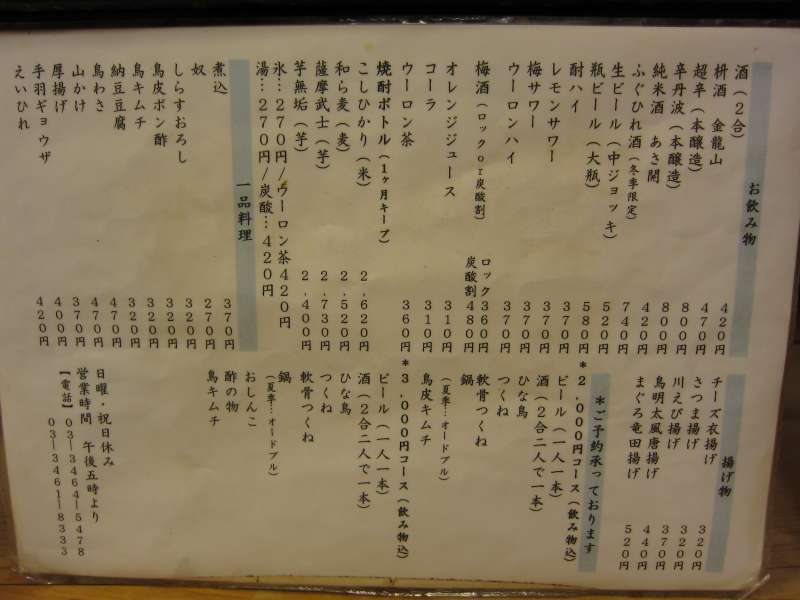 お飲み物
酒(2合) 420円
枡酒 金龍山 470円
超辛(本醸造) 800円
辛丹波(本醸造) 800円
純米酒 あさ開 420円
ふぐひれ酒(冬季限定) 740円
生ビール(中ジョッキ) 520円
瓶ビール(大瓶) 580円
酎ハイ 370円
レモンサワー 370円
梅サワー 370円
ウーロンハイ 370円
梅酒(ロックor炭酸割) ロック360円
炭酸割480円
オレンジジュース 310円
コーラ 310円
ウーロン茶 360円
焼酎ボトル(1ヶ月キープ)
こしひかり(米) 2,620円
和ら麦(麦) 2,520円
薩摩武士(芋) 2,730円
芋無垢(芋) 2,400円
氷…270円/ウーロン茶420円
湯…270円/炭酸…420円
一品料理
煮込 370円
奴 270円
しらすおろし 320円
鳥皮ポン酢 320円
鳥キムチ 320円
納豆豆腐 320円
鳥わさ 470円
山かけ 470円
厚揚げ 370円
手羽ギョウザ 400円
えいひれ 420円
揚げ物
チーズ衣揚げ 320円
さつま揚げ 320円
川えび揚げ 370円
鳥明太風唐揚げ 440円
まぐろ竜田揚げ 520円
*ご予約承っております
*2,000円コース(飲み物込)
ビール(一人一本)
酒(2合二人で一本)
ひな鳥
つくね
軟骨つくね
鍋
(夏季…オードブル)
鳥皮キムチ
*3,000円コース(飲み物込)
ビール(一人一本)
酒(2合二人で一本)
ひな鳥
つくね
軟骨つくね
鍋
(夏季…オードブル)
おしんこ
酢の物
鳥キムチ
日曜・祝日休み
営業時間 午後五時より
【電話】03-3464-5478
03-3461-8333